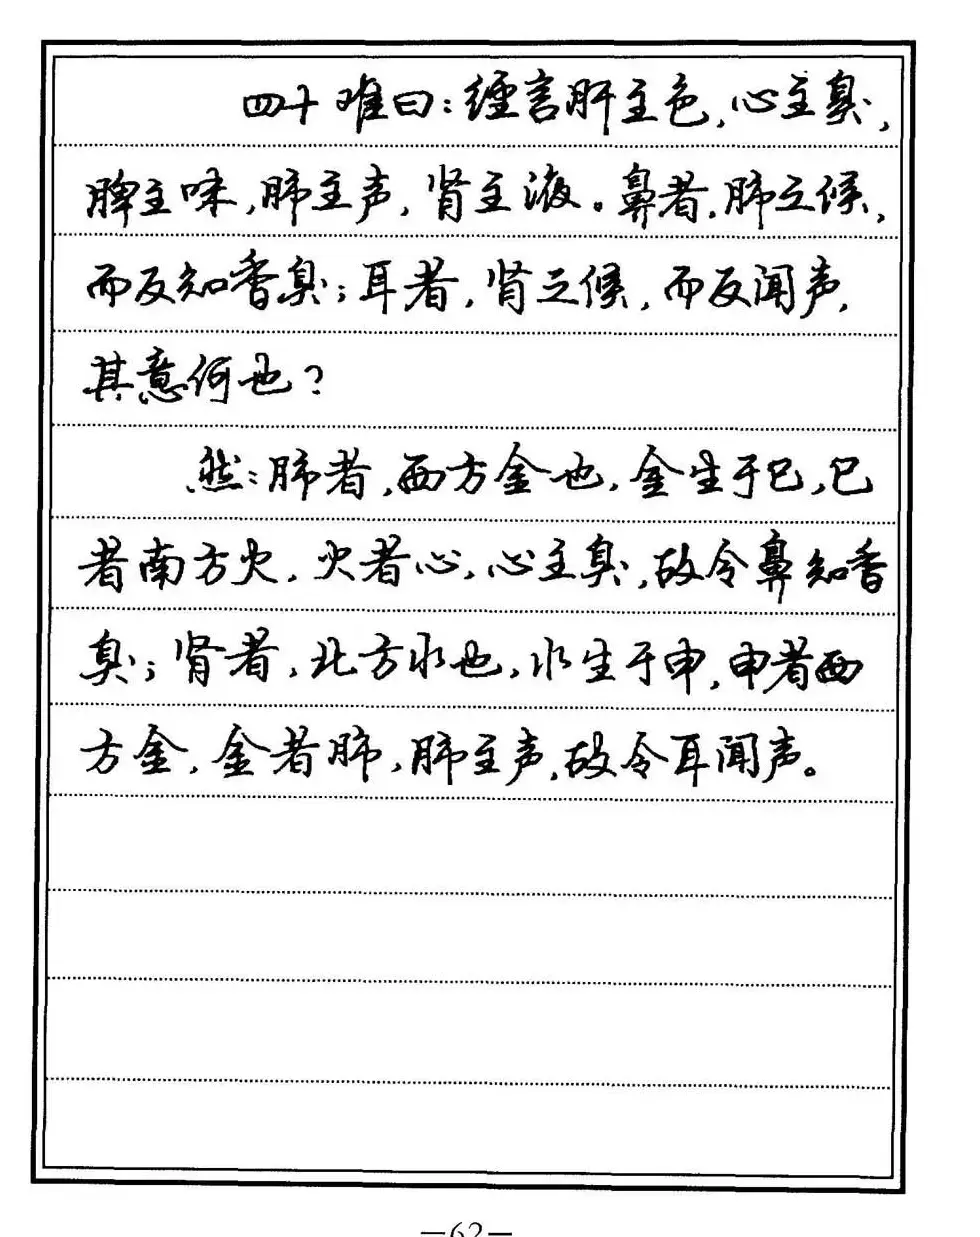 四十难曰：经言肝主色，心主臭，
脾主味，肺主声，肾主液。鼻者，肺之候，
而反知香臭；耳者，肾之候，而反闻声，
其意何也？
然：肺者，西方金也，金生于巳，巳
者南方火，火者心，心主臭，故令鼻知香
臭；肾者，北方水也，水生于申，申者西
方金，金者肺，肺主声，故令耳闻声。
—62—